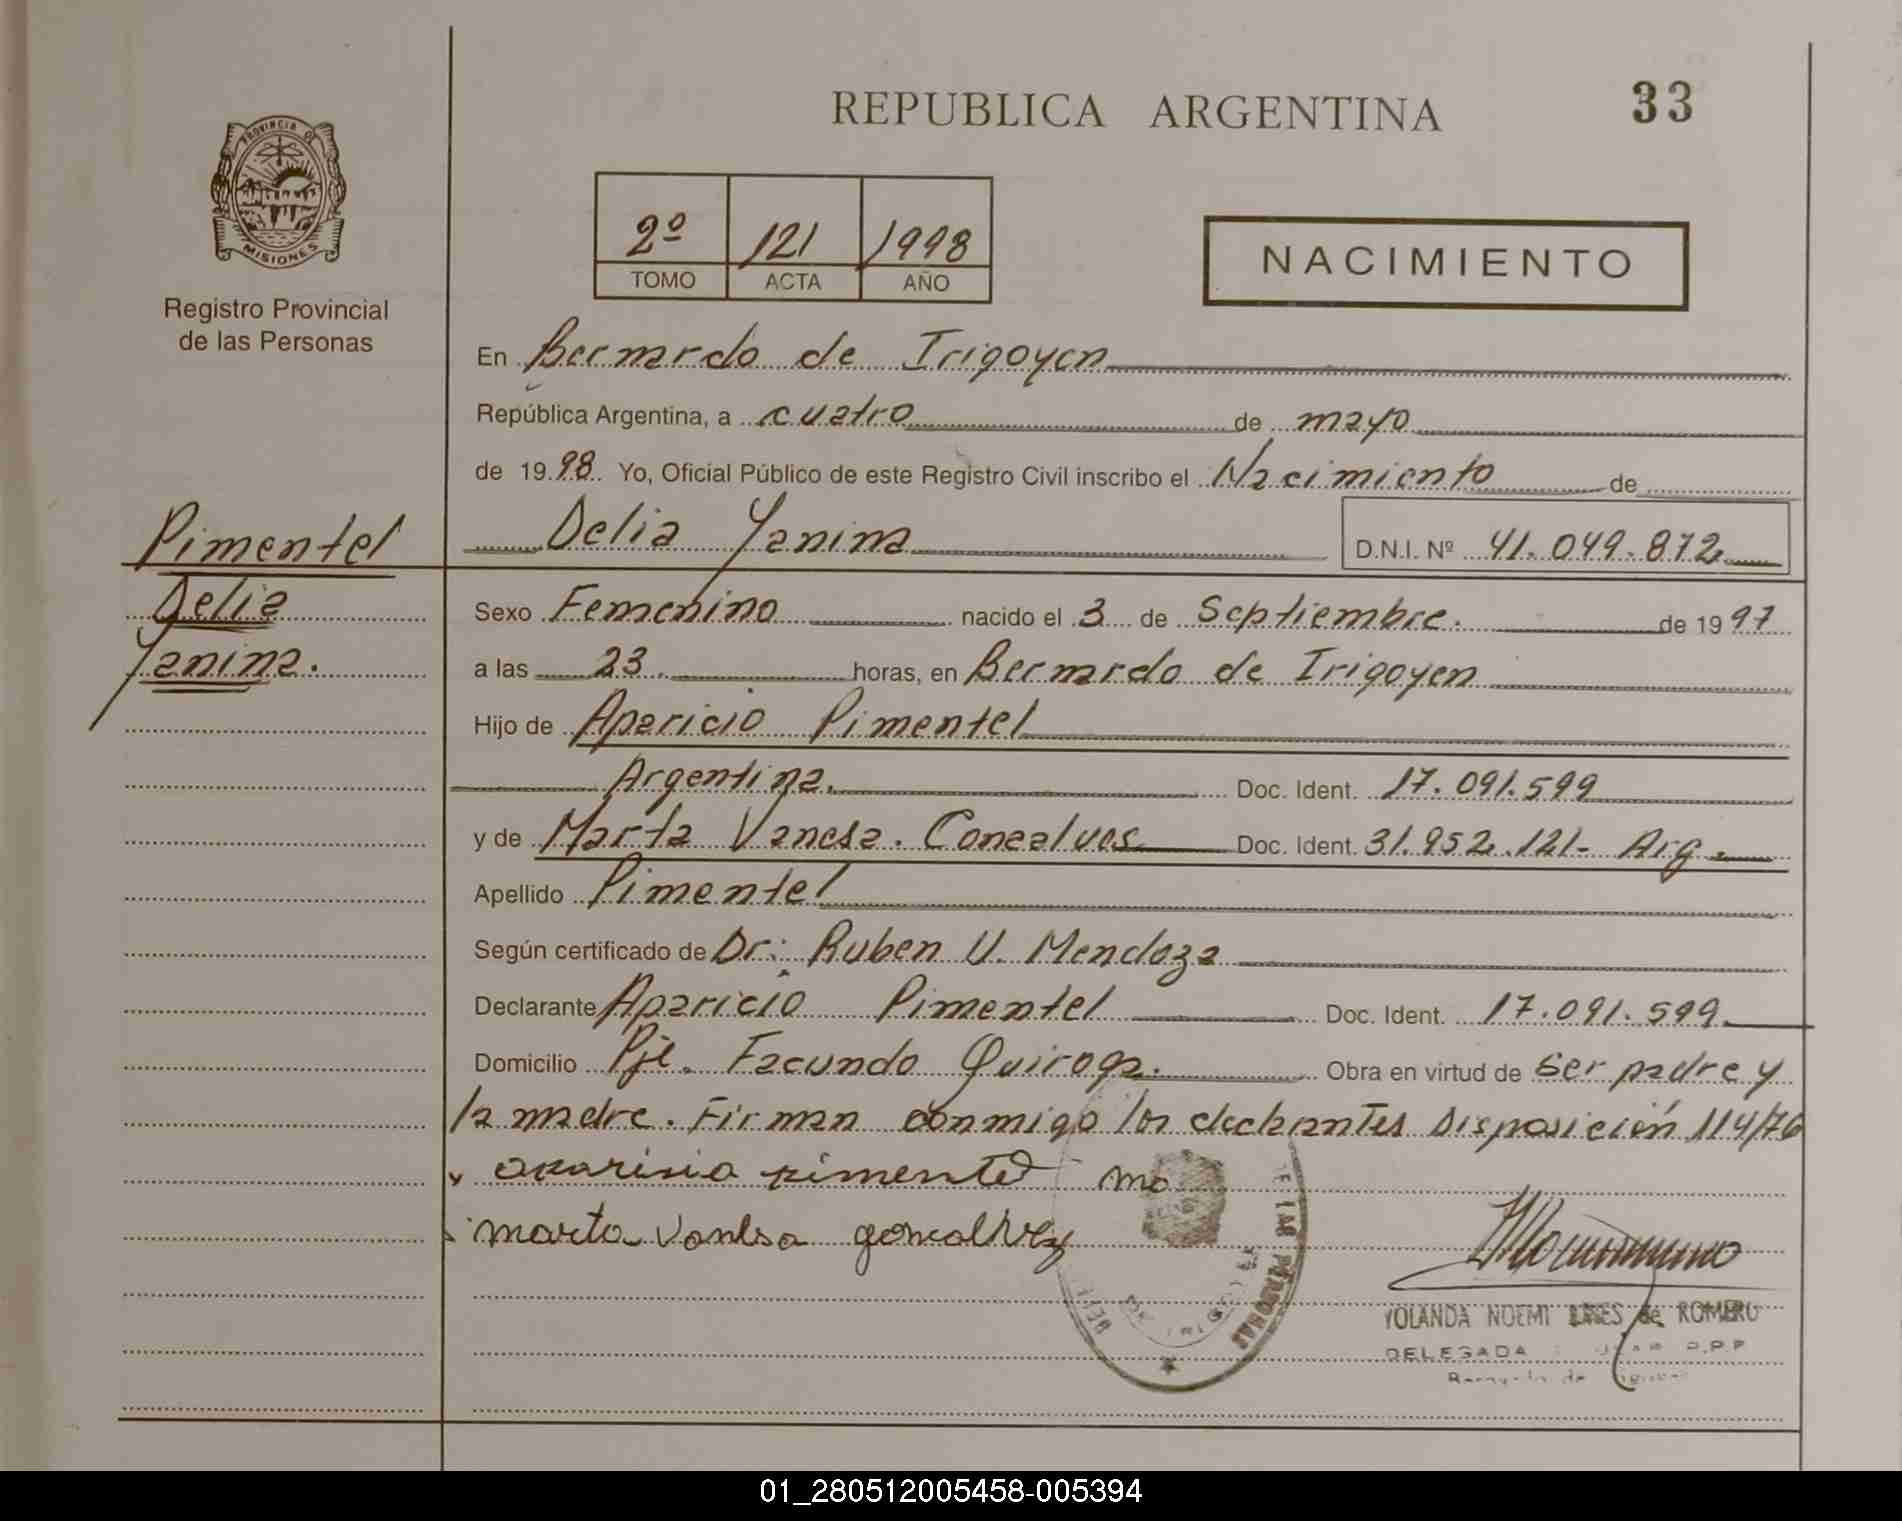 REPUBLICA ARGENTINA
33
PROVINCIA DE
MISIONES
Registro Provincial
de las Personas
2º 121 1998
TOMO ACTA AÑO
NACIMIENTO
En Bernardo de Irigoyen
República Argentina, a cuatro de mayo
de 1998 Yo, Oficial Público de este Registro Civil inscribo el Nacimiento de
Delia Yanina D.N.I. Nº 41.049.872
Pimentel
Delia
Yanina.
Sexo Femenino nacido el 3 de Septiembre. de 1997
a las 23. horas, en Bernardo de Irigoyen
Hijo de Aparicio Pimentel
Argentina. Doc. Ident. 17.091.599
y de Marta Vanesa. Doc. Ident. 31.952.121- Arg.
Apellido Pimentel
Según certificado de Dr: Ruben U. Mendoza
Declarante Aparicio Pimentel Doc. Ident. 17.091.599.
Domicilio Pje. Facundo Quiroga. Obra en virtud de ser padre y
la madre. Firman conmigo los declarantes Disposición 114/76
pimentel
marta
DE LAS PERSONAS
YOLANDA NOEMI de ROMERO
DELEGADA
01_280512005458-005394